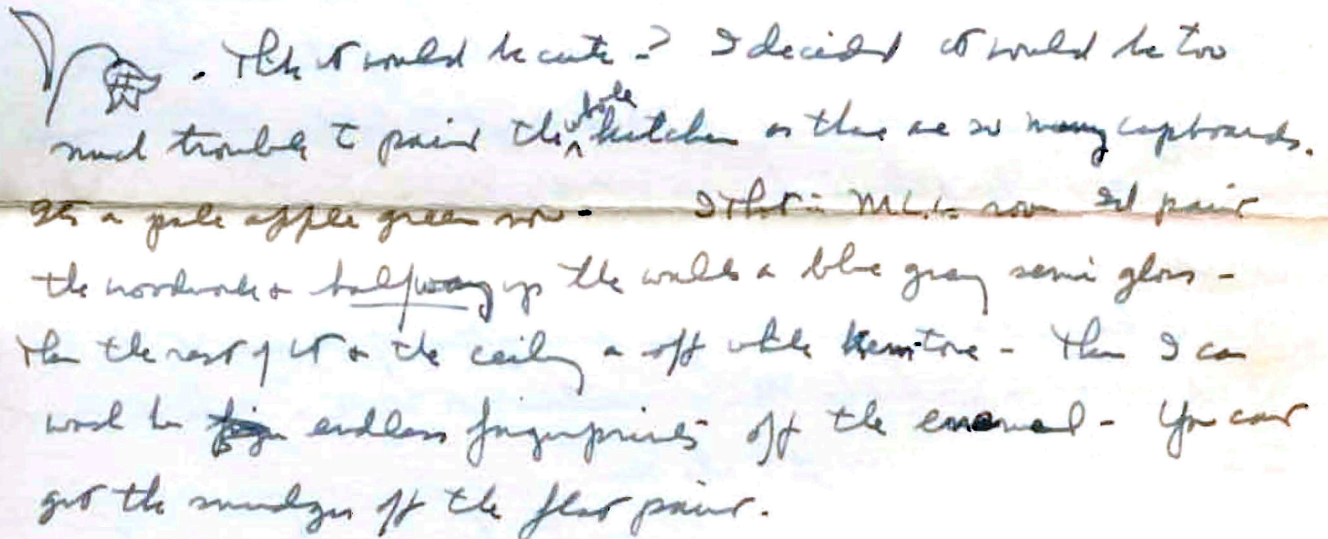 . Think it would be cute - ? I decided it would be too
much trouble to paint the whole kitchen as there are so many cupboards.
It's a pale apple green now - I tho't in M.L.'s room I'd paint
the woodwork & halfway up the walls a blue gray semi gloss -
then the rest of it & the ceiling a off white Kemtone - Then I can
wash her endless fingerprints off the enamel - You can't
get the smudges off the flat paint.